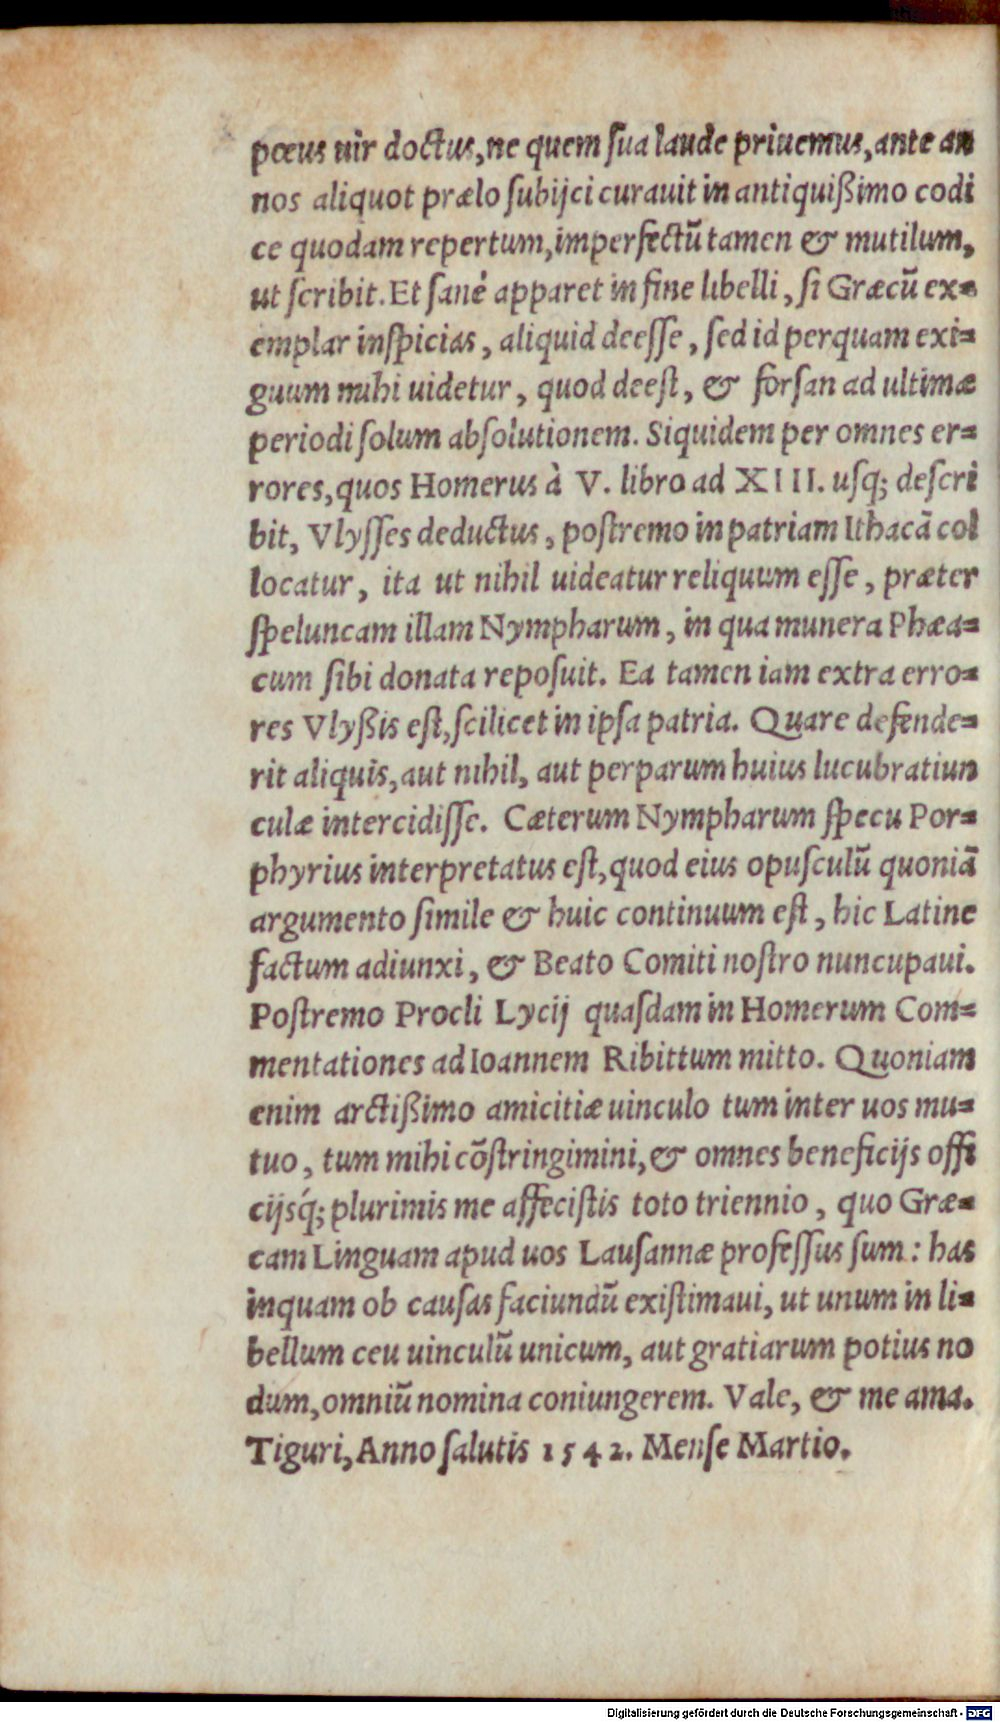 pœus uir doctus, ne quem ſua laude priuemus, ante an
nos aliquot prælo ſubijci curauit in antiquißimo codi
ce quodam repertum, imperfectū tamen & mutilum,
ut ſcribit. Et ſanè apparet in fine libelli, ſi Græcū ex=
emplar inſpicias, aliquid deeſſe, ſed id perquam exi=
guum mihi uidetur, quod deeſt, & forſan ad ultimæ
periodi ſolum abſolutionem. Siquidem per omnes er=
rores, quos Homerus à V. libro ad XIII. uſq; deſcri
bit, Vlyſſes deductus, poſtremo in patriam Ithacā col
locatur, ita ut nihil uideatur reliquum eſſe, præter
ſpeluncam illam Nympharum, in qua munera Phæa=
cum ſibi donata repoſuit. Ea tamen iam extra erro=
res Vlyßis eſt, ſcilicet in ipſa patria. Quare defende=
rit aliquis, aut nihil, aut perparum huius lucubratiun
culæ intercidiſſe. Cæterum Nympharum ſpecu Por=
phyrius interpretatus eſt, quod eius opuſculū quoniā
argumento ſimile & huic continuum eſt, hic Latine
factum adiunxi, & Beato Comiti noſtro nuncupaui.
Poſtremo Procli Lycij quaſdam in Homerum Com=
mentationes ad Ioannem Ribittum mitto. Quoniam
enim arctißimo amicitiæ uinculo tum inter uos mu=
tuo, tum mihi cōſtringimini, & omnes beneficijs offi
cijsq́; plurimis me affeciſtis toto triennio, quo Græ=
cam Linguam apud uos Lauſannæ profeſſus ſum: has
inquam ob cauſas faciundū exiſtimaui, ut unum in li=
bellum ceu uinculū unicum, aut gratiarum potius no
dum, omniū nomina coniungerem. Vale, & me ama.
Tiguri, Anno ſalutis 1542. Menſe Martio.
Digitalisierung gefördert durch die Deutsche Forschungsgemeinschaft - DFG